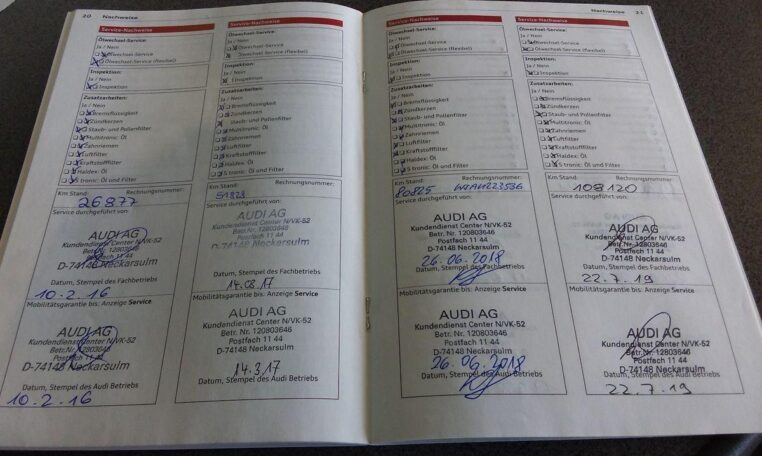 20 Nachweise
Service-Nachweise
Ölwechsel-Service:
Ja / Nein
Ölwechsel-Service
Ölwechsel-Service (flexibel)
Inspektion:
Ja / Nein
Inspektion
Zusatzarbeiten:
Ja / Nein
Bremsflüssigkeit
Zündkerzen
Staub- und Pollenfilter
Multitronic: Öl
Zahnriemen
Luftfilter
Kraftstofffilter
Haldex: Öl
S tronic: Öl und Filter
Km Stand: Rechnungsnummer:
26877
Service durchgeführt von:
AUDI AG
Kundendienst Center N/VK-52
Betr.Nr. 120803646
Postfach 11 44
D-74148 Neckarsulm
Datum, Stempel des Fachbetriebs
10.2.16
Mobilitätsgarantie bis: Anzeige Service
AUDI AG
Kundendienst Center N/VK-52
Betr.Nr. 120803646
Postfach 11 44
D-74148 Neckarsulm
Datum, Stempel des Audi Betriebs
10.2.16
Service-Nachweise
Ölwechsel-Service:
Ja / Nein
Ölwechsel-Service
Ölwechsel-Service (flexibel)
Inspektion:
Ja / Nein
Inspektion
Zusatzarbeiten:
Ja / Nein
Bremsflüssigkeit
Zündkerzen
Staub- und Pollenfilter
Multitronic: Öl
Zahnriemen
Luftfilter
Kraftstofffilter
Haldex: Öl
S tronic: Öl und Filter
Km Stand: Rechnungsnummer:
Service durchgeführt von:
AUDI AG
Kundendienst Center N/VK-52
Betr. Nr. 120803646
Postfach 11 44
D-74148 Neckarsulm
Datum, Stempel des Fachbetriebs
Mobilitätsgarantie bis: Anzeige Service
AUDI AG
Kundendienst Center N/VK-52
Betr. Nr. 120803646
Postfach 11 44
D-74148 Neckarsulm
14.3.17
Datum, Stempel des Audi Betriebs
Nachweise 21
Service-Nachweise
Ölwechsel-Service:
Ja / Nein
Ölwechsel-Service
Ölwechsel-Service (flexibel)
Inspektion:
Ja / Nein
Inspektion
Zusatzarbeiten:
Ja / Nein
Bremsflüssigkeit
Zündkerzen
Staub- und Pollenfilter
Multitronic: Öl
Zahnriemen
Luftfilter
Kraftstofffilter
Haldex: Öl
S tronic: Öl und Filter
Km Stand: Rechnungsnummer:
80825
Service durchgeführt von:
AUDI AG
Kundendienst Center N/VK-52
Betr. Nr. 120803646
Postfach 11 44
D-74148 Neckarsulm
26.06.2018
Datum, Stempel des Fachbetriebs
Mobilitätsgarantie bis: Anzeige Service
AUDI AG
Kundendienst Center N/VK-52
Betr. Nr. 120803646
Postfach 11 44
D-74148 Neckarsulm
26.06.2018
Datum, Stempel des Audi Betriebs
Service-Nachweise
Ölwechsel-Service:
Ja / Nein
Ölwechsel-Service
Ölwechsel-Service (flexibel)
Inspektion:
Ja / Nein
Inspektion
Zusatzarbeiten:
Ja / Nein
Bremsflüssigkeit
Zündkerzen
Staub- und Pollenfilter
Multitronic: Öl
Zahnriemen
Luftfilter
Kraftstofffilter
Haldex: Öl
S tronic: Öl und Filter
Km Stand: Rechnungsnummer:
108120
Service durchgeführt von:
AUDI AG
Kundendienst Center N/VK-52
Betr. Nr. 120803646
Postfach 11 44
D-74148 Neckarsulm
Datum, Stempel des Fachbetriebs
22.7.19
Mobilitätsgarantie bis: Anzeige Service
AUDI AG
Kundendienst Center N/VK-52
Betr. Nr. 120803646
Postfach 11 44
D-74148 Neckarsulm
Datum, Stempel des Audi Betriebs
22.7.19